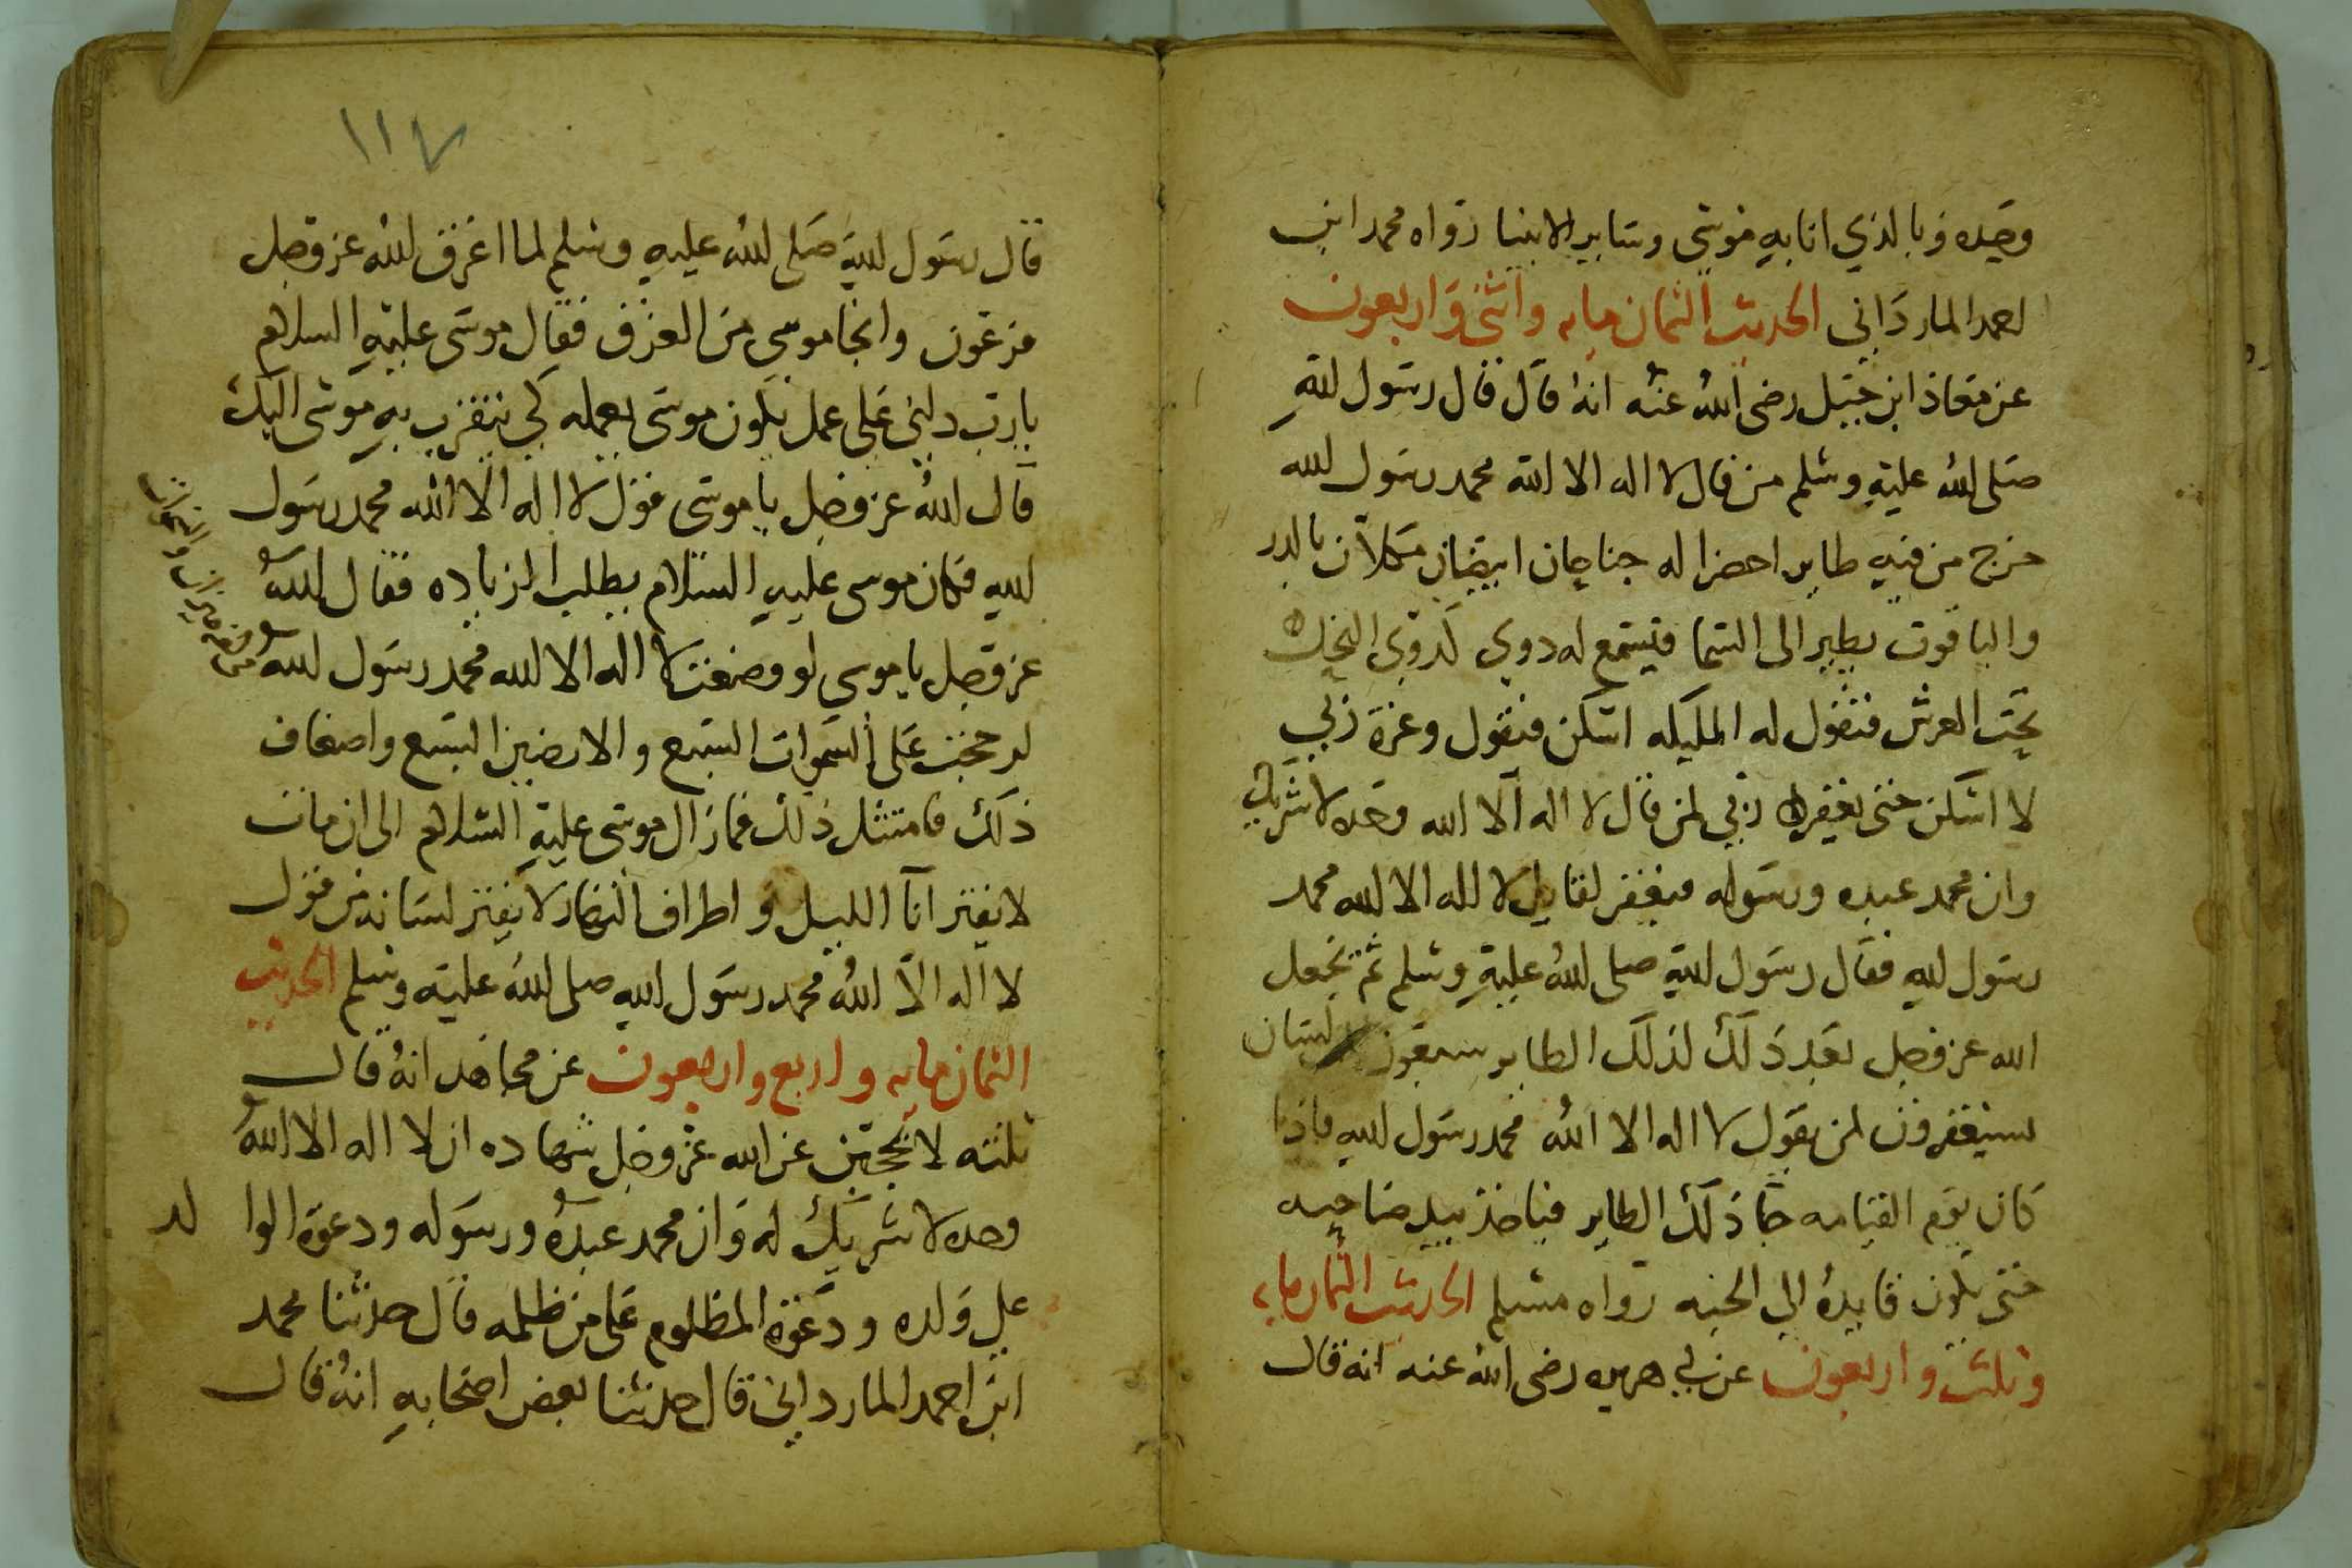 وحده وبالذي اتابه موسى وساير الانبيا رواه محمد ابن
احمد المارداني الحديث الثمان مايه واثنى واربعون
عن معاذ ابن جبل رضى الله عنه انه قال قال رسول الله
صلى الله عليه وسلم من قال لا اله الا الله محمد رسول الله
خرج من فيه طاير اخضرا له جناحان ابيضان مكللان بالدر
والياقوت يطير الى السما فيسمع له دوي كدوي النحل
تحت العرش فتقول له المليكه اسكن فيقول وعزة ربي
لا اسكن حتى يغفر ربي لمن قال لا اله الا الله وحده لا شريك
وان محمد عبده ورسوله فيغفر لقايل لا اله الا الله محمد
رسول الله فقال رسول الله صلى الله عليه وسلم ثم يجعل
الله عز وجل بعد ذلك لذلك الطاير سبعون لسان
يستغفرون لمن يقول لا اله الا الله محمد رسول الله فاذا
كان يوم القيامه جا ذلك الطاير فياخذ بيد صاحبه
حتى يكون قايده الى الجنه رواه مسلم الحديث الثمان مايه
وثلث واربعون عن ابي هريره رضى الله عنه انه قال
١١٧
قال رسول الله صلى الله عليه وسلم لما اغرق الله عز وجل
فرعون وانجا موسى من الغرق فقال موسى عليه السلام
يا رب دلني على عمل يكون موسى يعمله كي يتقرب به موسى اليك
قال الله عز وجل يا موسى قول لا اله الا الله محمد رسول
الله فكان موسى عليه السلام يطلب الزياده فقال الله
عز وجل يا موسى لو وضعت لا اله الا الله محمد رسول الله
لرجحت على السموات السبع والارضين السبع واضعاف
ذلك فامتثل ذلك فمازال موسى عليه السلام الى ان مات
لا يفتر انآ الليل و اطراف النهار لا يفتر لسانه من قول
لا اله الا الله محمد رسول الله صلى الله عليه وسلم الحديث
الثمان مايه و اربع واربعون عن مجاهد انه قال
ثلثه لا تحجبن عن الله عز وجل شهاده ان لا اله الا الله
وحده لا شريك له وان محمد عبده ورسوله ودعوة الوا لد
على ولده و دعوة المظلوم على من ظلمه قال حدثنا محمد
ابن احمد المارداني قال حدثنا بعض اصحابه انه قال